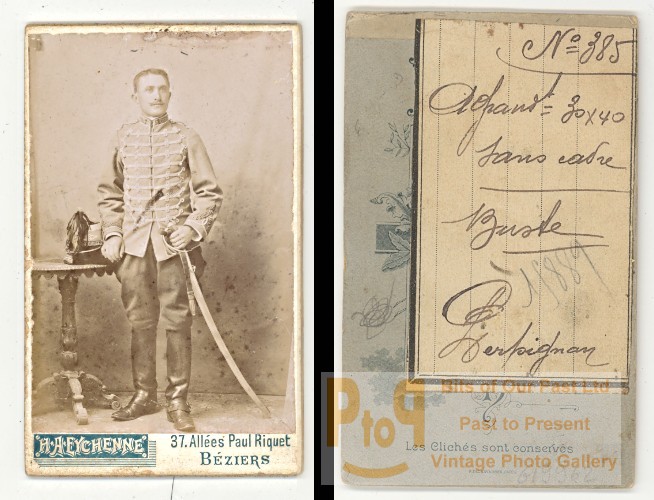 H.A. EYCHENNE
37. Allées Paul Riquet
BÉZIERS
No 385
Agrandt = 30 x 40
sans cadre
Buste
15889
Perpignan
PtoP
Bits of Our Past Ltd
Past to Present
Les Clichés sont conservés
Vintage Photo Gallery